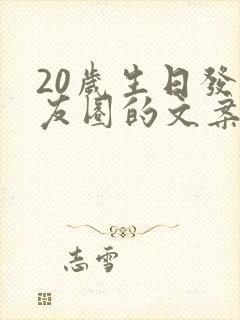 20歲生日發
友圈的文案
志雪